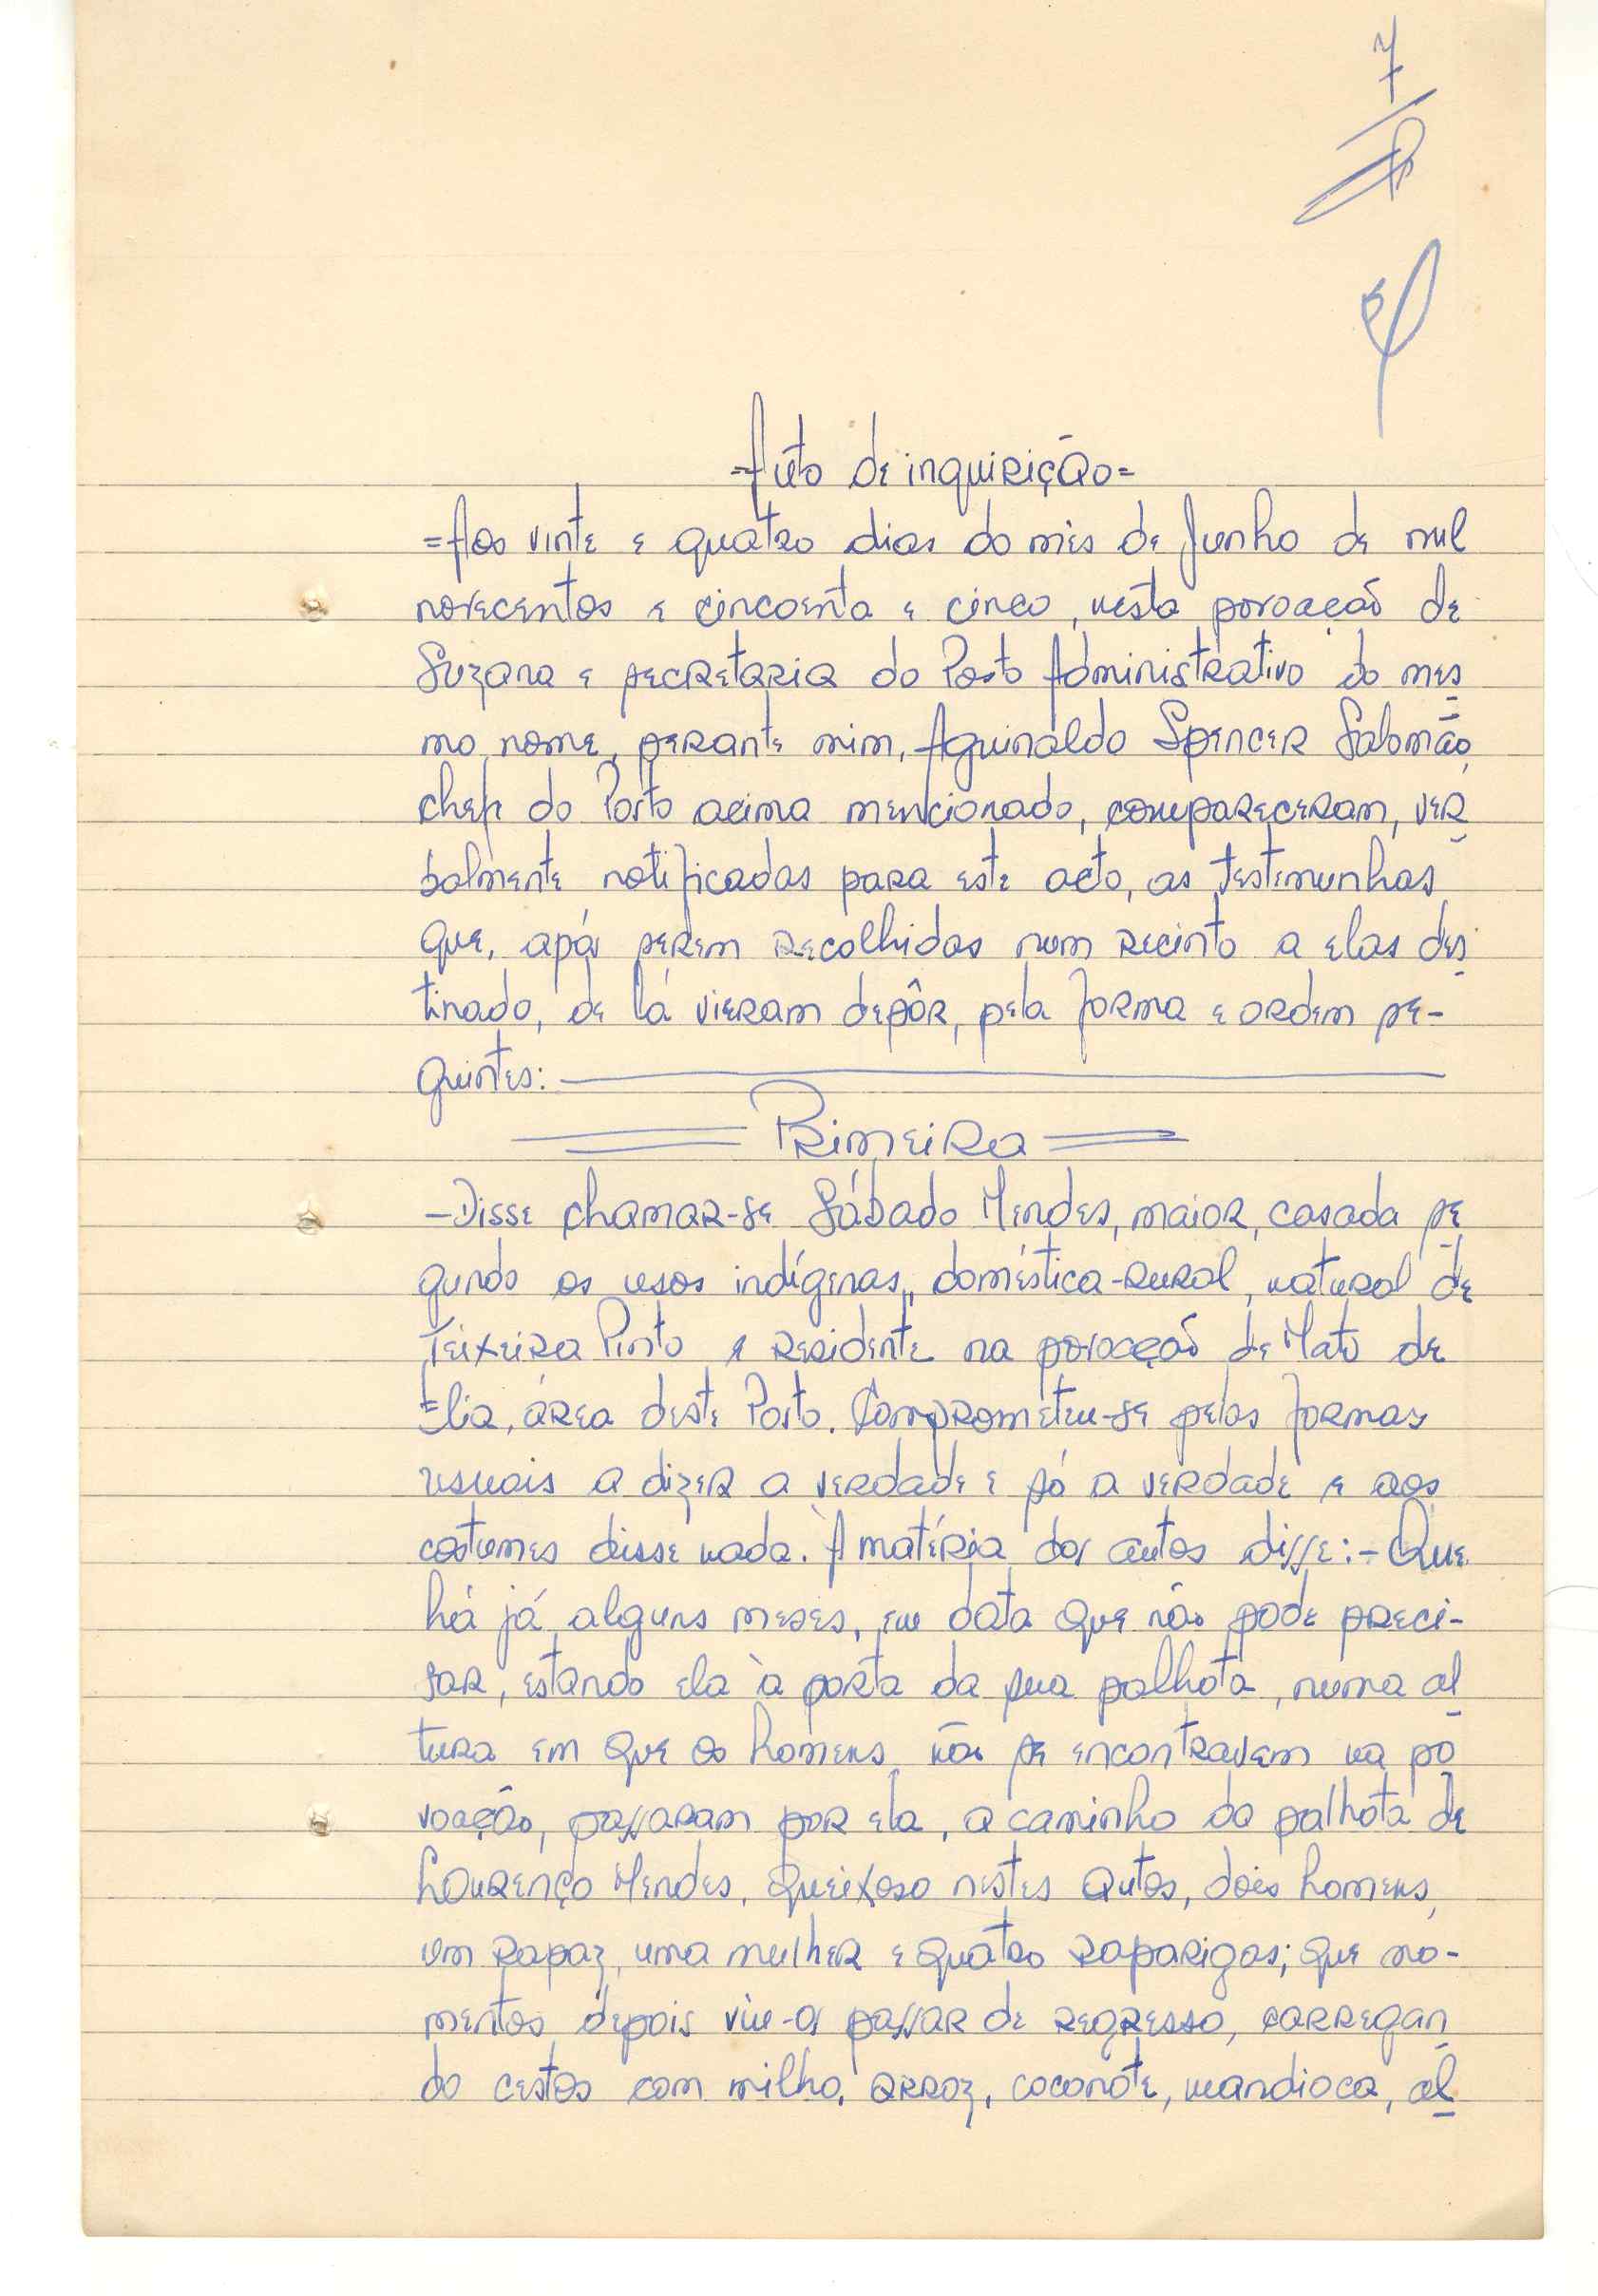 7
=Auto de inquirição=
=Aos vinte e quatro dias do mês de Junho de mil
novecentos e cincoenta e cinco, nesta povoação de
Suzana e secretaria do Posto Administrativo do mes
mo nome, perante mim, Aguinaldo Spencer Salomão,
chefe do Posto acima mencionado, compareceram, ver
balmente notificadas para este acto, as testemunhas
que, após serem recolhidas num recinto a elas des
tinado, de lá vieram depôr, pela forma e ordem se-
guintes:
Primeira
-Disse chamar-se Sábado Mendes, maior, casada se
gundo os usos indígenas, doméstica-rural, natural de
Teixeira Pinto e residente na povoação de Mato de
Elia, área deste Posto. Comprometeu-se pelas formas
usuais a dizer a verdade e só a verdade e aos
costumes disse nada. À matéria dos autos disse:- Que
há já alguns meses, em data que não pode preci-
sar, estando ela à porta da sua palhota, numa al
tura em que os homens não se encontravam na po
voação, passaram por ela, a caminho da palhota de
Lourenço Mendes, queixoso nestes autos, dois homens,
um rapaz, uma mulher e quatro raparigas; que mo-
mentos depois viu-os passar de regresso, carregan
do cestos com milho, arroz, coconote, mandioca, al